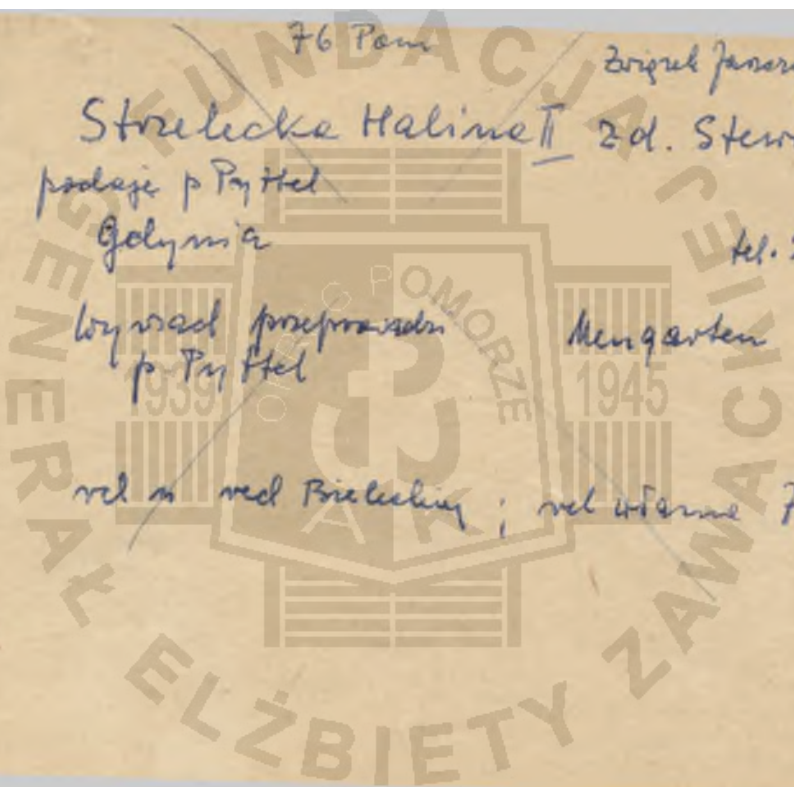 76 Pom
Związek
Strzelecka Halina II zd.
podaje p Pyttel
Gdynia tel.
Wywiad przeprowadzi Mengarten
p Pyttel
rel u red Bieleckiej ; rel własna
FUNDACJA GENERAŁ ELŻBIETY ZAWACKIEJ
OKRĘG POMORZE
1939 1945
AK